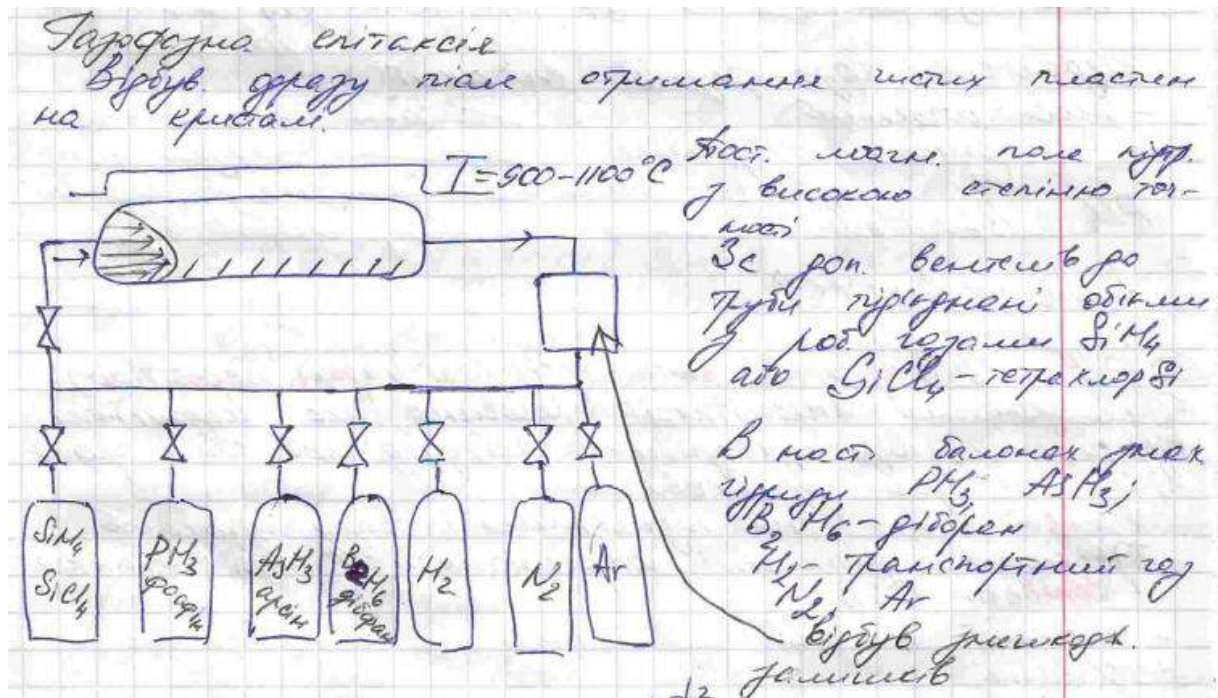 Газофазна епітаксія
Відбув. одразу після отримання чистих пластин
на кристалі.
T=900-1100°C
Пост. магн. поле підтр.
з високою степінню точ-
ності
За доп. вентилів до
труби під'єднані об'єми
з роб. газами SiH4
або SiCl4 - тетрахлор Si
В наст. балонах знах
гідриди PH3, AsH3,
B2H6 - діборан
H2 - транспортний газ
N2, Ar
відбув знешкодж.
залишків
SiH4
SiCl4
PH3
фосфін
AsH3
арсін
B2H6
діборан
H2
N2
Ar